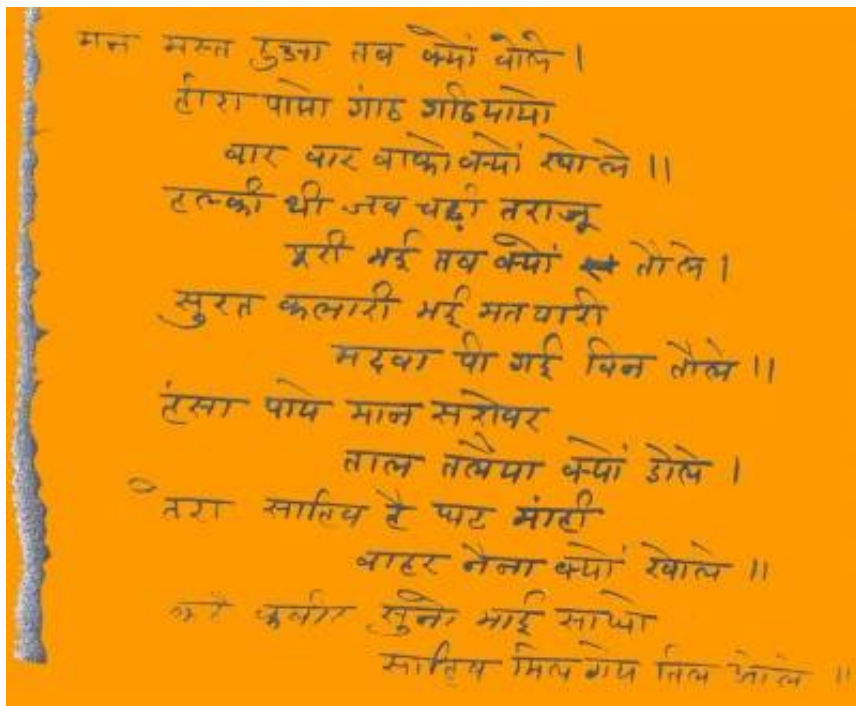 मन मस्त हुआ तब क्यों बोले ।
हीरा पायो गांठ गठियायो
बार बार वाको क्यों खोले ॥
हल्की थी जब चढ़ी तराजू
पूरी भई तब क्यों तोले ।
सुरत कलारी भई मतवारी
मदवा पी गई बिन तोले ॥
हंसा पाये मान सरोवर
ताल तलैया क्यों डोले ।
तेरा साहिब है घट मांही
बाहर नैना क्यों खोले ॥
कहै कबीर सुनो भाई साधो
साहिब मिल गये तिल ओले ॥